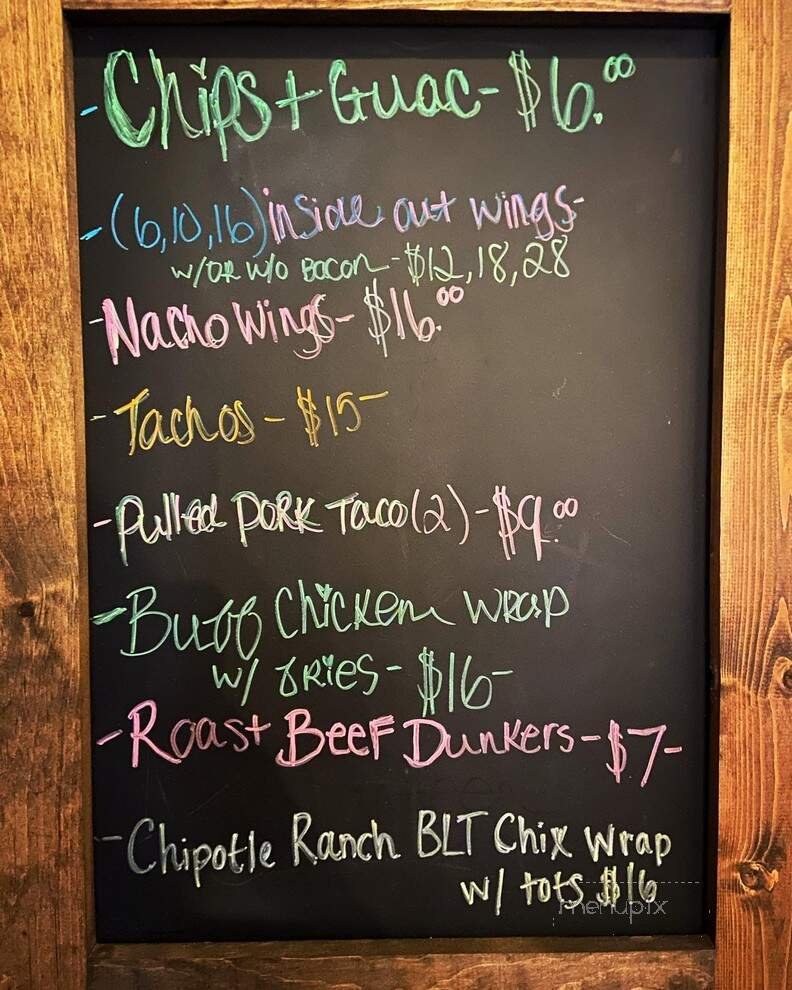 - Chips + Guac - $6.00
- (6,10,16) inside out wings-
w/or w/o Bacon - $12, 18, 28
- Nacho Wings - $16.00
- Tachos - $15-
- Pulled Pork Taco (2) - $9.00
- Buff Chicken Wrap
w/ fries - $16-
- Roast Beef Dunkers - $7-
- Chipotle Ranch BLT Chix Wrap
w/ tots $16
menupix